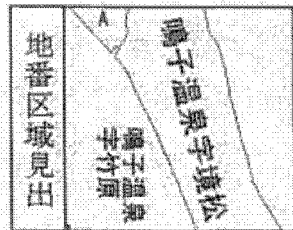 地番区域見出
A
鳴子温泉字境松
鳴子温泉
字竹原